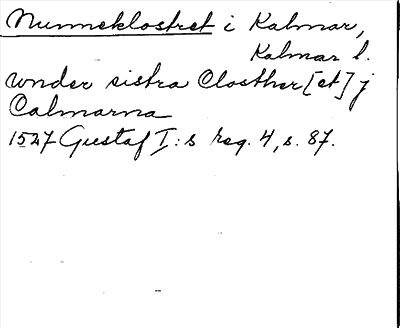 Nunneklostret i Kalmar,
Kalmar l.
wnder sistra Closther [et] j
Calmarna
1527 Gustaf I:s reg. 4, s. 87.